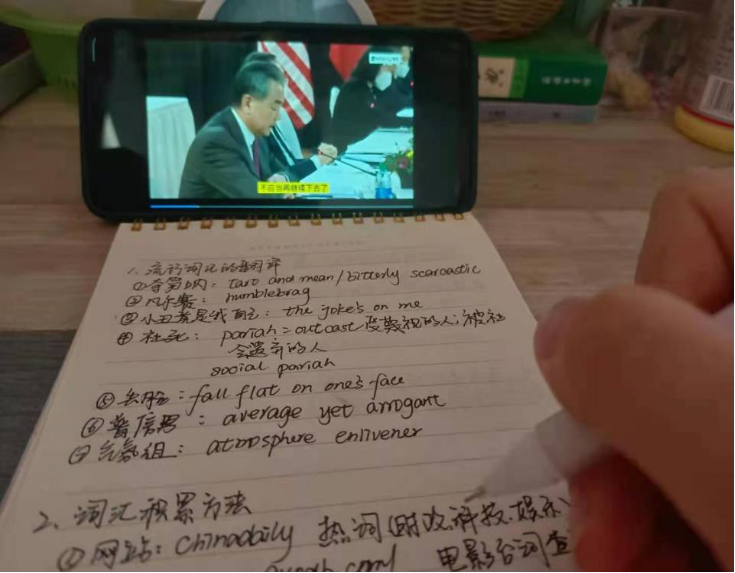 不应当再继续下去了
1、流行词汇的翻译
①夺笋呐：tart and mean/bitterly scaroastic
②凡尔赛：humblebrag
③小丑竟是我自己：the joke's on me
④社死：pariah = outcast 受鄙视的人；被社
会遗弃的人
social pariah
⑤丢脸：fall flat on one's face
⑥普信男：average yet arrogant
⑦气氛组：atmosphere enlivener
2、词汇积累方法
①网站：Chinadaily 热词(时政.科技.娱乐
.com/ 电影台词查